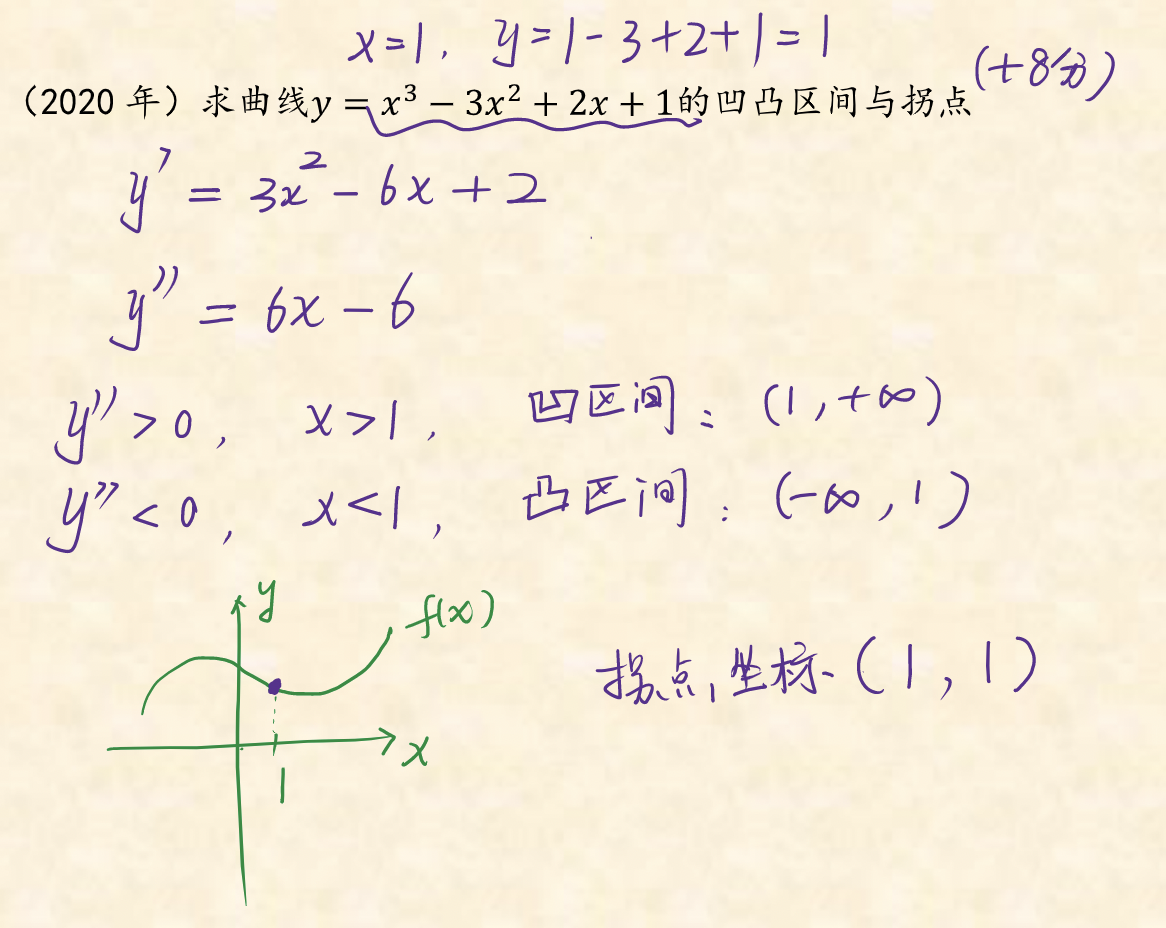 x=1, y=1-3+2+1=1
(+8分)
（2020 年）求曲线y = x³ − 3x² + 2x + 1的凹凸区间与拐点
y' = 3x² - 6x + 2
y'' = 6x - 6
y''>0, x>1, 凹区间: (1,+∞)
y''<0, x<1, 凸区间: (-∞,1)
y
f(x)
拐点坐标(1,1)
x
1